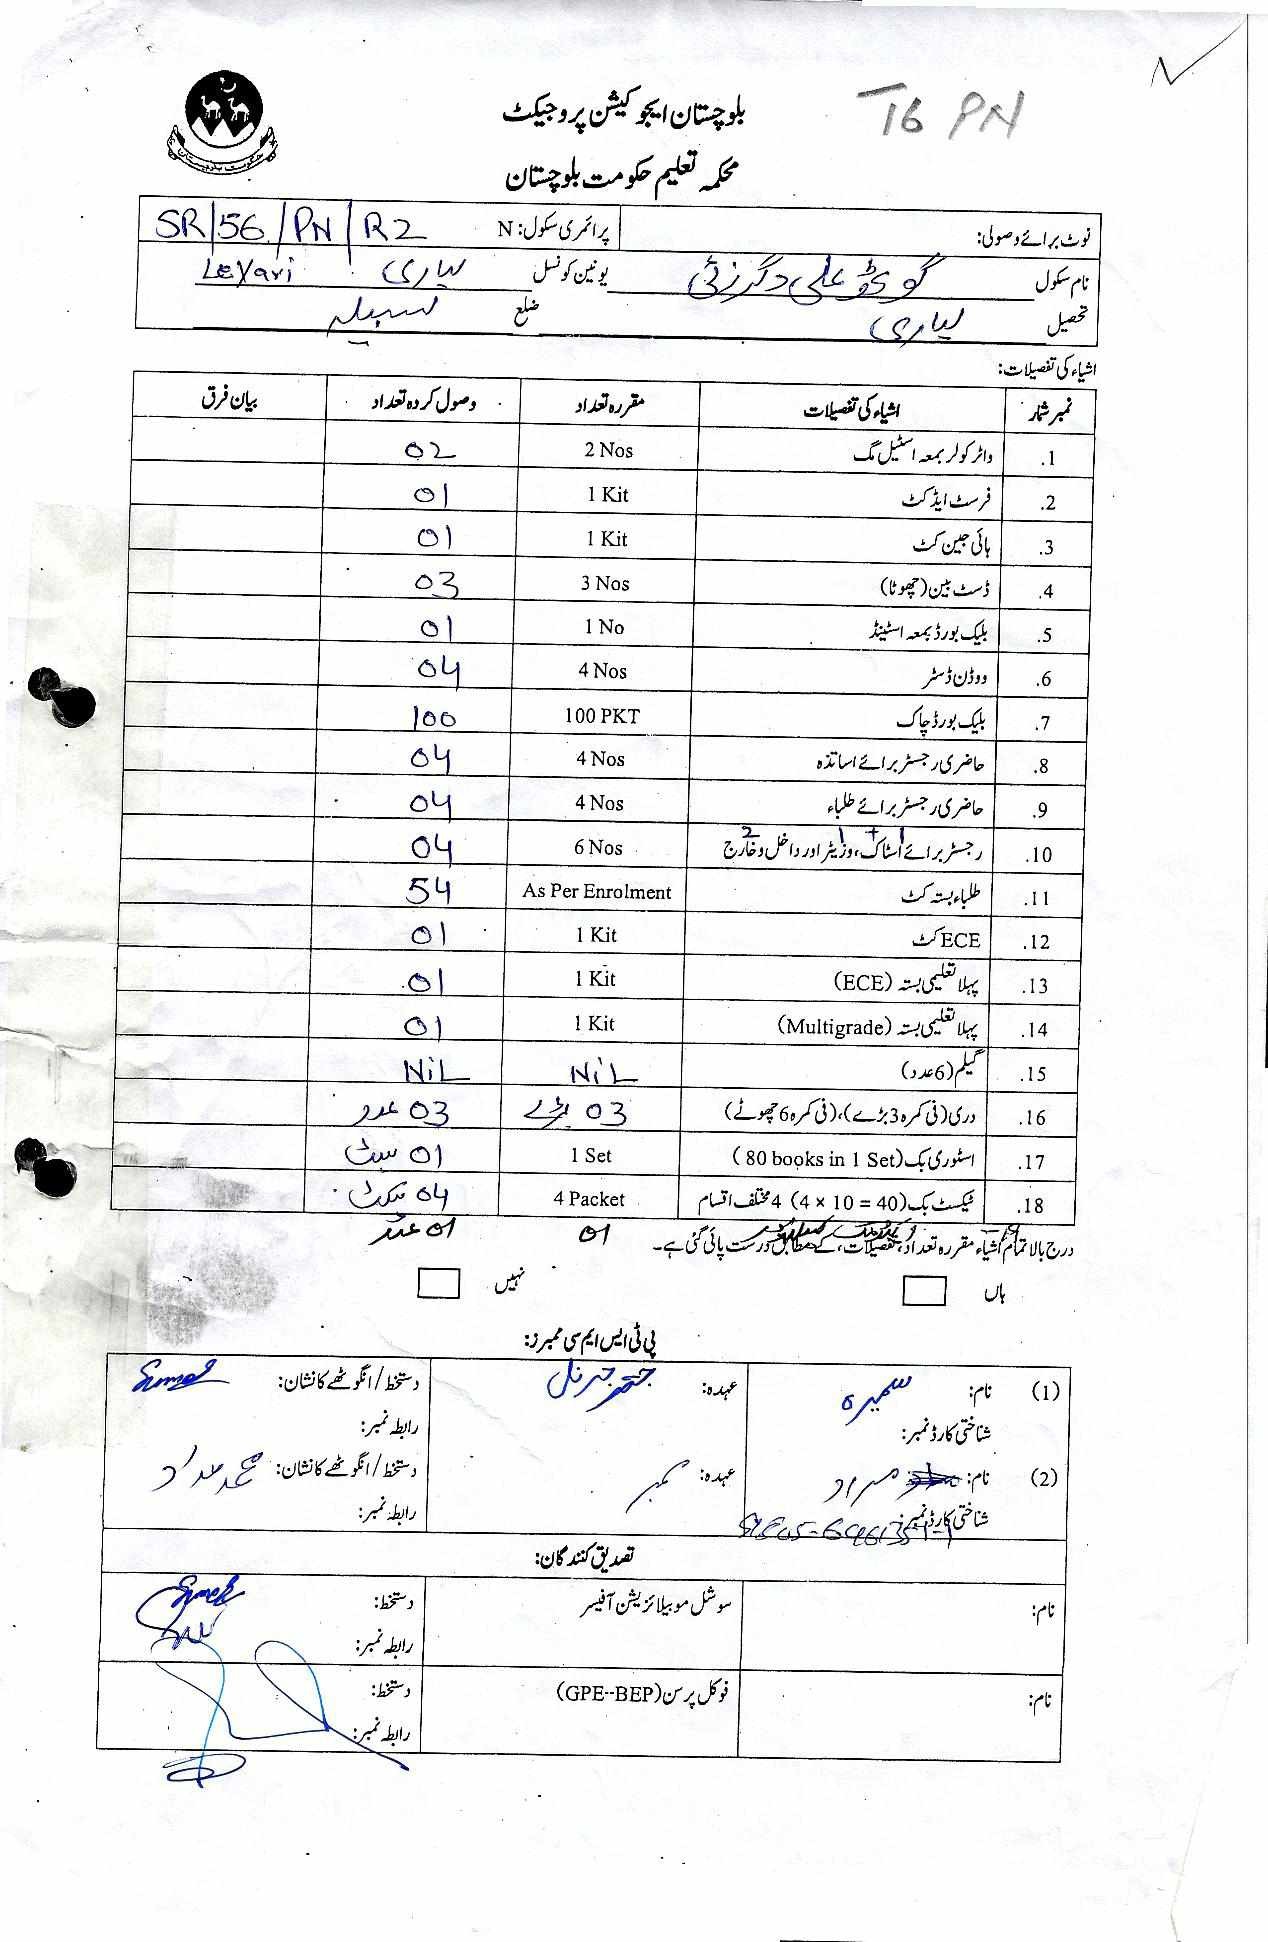 T6 PN
بلوچستان ایجوکیشن پروجیکٹ
محکمہ تعلیم حکومت بلوچستان
حکومت بلوچستان
نوٹ برائے وصولی: پرائمری سکول: N SR/56/PN/R2
نام سکول گوٹھ علی یونین کونسل لیاری Leyari
تحصیل لیاری ضلع لسبیلہ
اشیاء کی تفصیلات:
نمبر شمار اشیاء کی تفصیلات مقررہ تعداد وصول کردہ تعداد بیان فرق
1. واٹر کولر بمعہ اسٹیل مگ 2 Nos 02
2. فرسٹ ایڈ کٹ 1 Kit 01
3. ہائی جین کٹ 1 Kit 01
4. ڈسٹ بین (چھوٹا) 3 Nos 03
5. بلیک بورڈ بمعہ اسٹینڈ 1 No 01
6. ووڈن ڈسٹر 4 Nos 04
7. بلیک بورڈ چاک 100 PKT 100
8. حاضری رجسٹر برائے اساتذہ 4 Nos 04
9. حاضری رجسٹر برائے طلباء 4 Nos 04
1 + 1 2
10. رجسٹر برائے اسٹاک، وزیٹر اور داخل و خارج 6 Nos 04
11. طلباء بستہ کٹ As Per Enrolment 54
12. ECE کٹ 1 Kit 01
13. پہلا تعلیمی بستہ (ECE) 1 Kit 01
14. پہلا تعلیمی بستہ (Multigrade) 1 Kit 01
15. گلیم (6 عدد) NiL NiL
16. دری (فی کمرہ 3 بڑے)، (فی کمرہ 6 چھوٹے) 03 بڑے 03 عدد
17. اسٹوری بک (80 books in 1 Set) 1 Set 01 سیٹ
18. ٹیکسٹ بک (4 × 10 = 40) 4 مختلف اقسام 4 Packet 04 پیکٹ
01 01 عدد
درج بالا تمام اشیاء مقررہ تعداد، تفصیلات، کے مطابق درست پائی گئی ہے۔
ہاں نہیں
پی ٹی ایس ایم سی ممبرز:
(1) نام: سمیرہ عہدہ: جنرل دستخط / انگوٹھے کا نشان:
شناختی کارڈ نمبر: رابطہ نمبر:
(2) نام: مراد عہدہ: ممبر دستخط / انگوٹھے کا نشان:
شناختی کارڈ نمبر: رابطہ نمبر:
تصدیق کنندگان:
نام: سوشل موبیلائزیشن آفیسر دستخط:
رابطہ نمبر:
نام: فوکل پرسن (GPE--BEP) دستخط:
رابطہ نمبر: